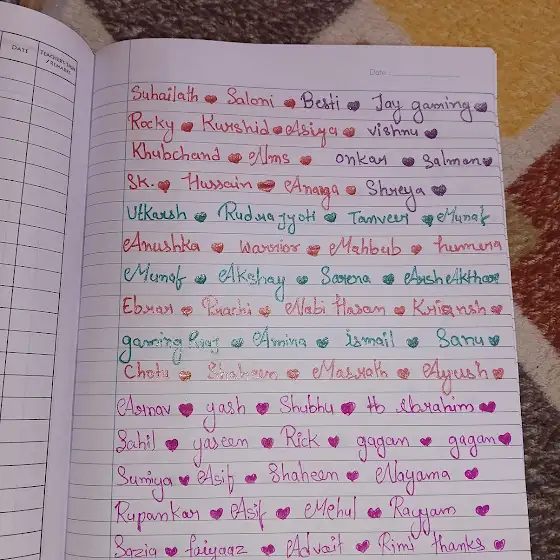 DATE
TEACHER'S SIGN / REMARKS
Date
Suhailath ❤ Saloni ❤ Besti ❤ Jay gaming ❤
Rocky ❤ Kurshid ❤ Asiya ❤ vishnu ❤
Khubchand ❤ Nms ❤ onkar ❤ Salman ❤
SK. ❤ Hussain ❤ Anaya ❤ Shreya ❤
Utkarsh ❤ Rudra jyoti ❤ Tanveer ❤ Munaf
Anushka ❤ warrior ❤ Mahbub ❤ humera
Munaf ❤ Akshay ❤ Sarena ❤ Arsh Akthar
Ebrar ❤ Prachi ❤ Nabi Hasan ❤ Kriansh ❤
gaming Raj ❤ Amina ❤ ismail ❤ Sanu ❤
Chotu ❤ Shaheen ❤ Masrath ❤ Ayush ❤
Arnav ❤ yash ❤ Shubhu ❤ Ibrahim ❤
Sahil ❤ yaseen ❤ Rick ❤ gagan ❤ gagan ❤
Sumiya ❤ Asif ❤ Shaheen ❤ Nayama ❤
Rupankar ❤ Asif ❤ Mehul ❤ Rayyam ❤
Sazia ❤ faiyaaz ❤ Advait ❤ Rimi thanks ❤